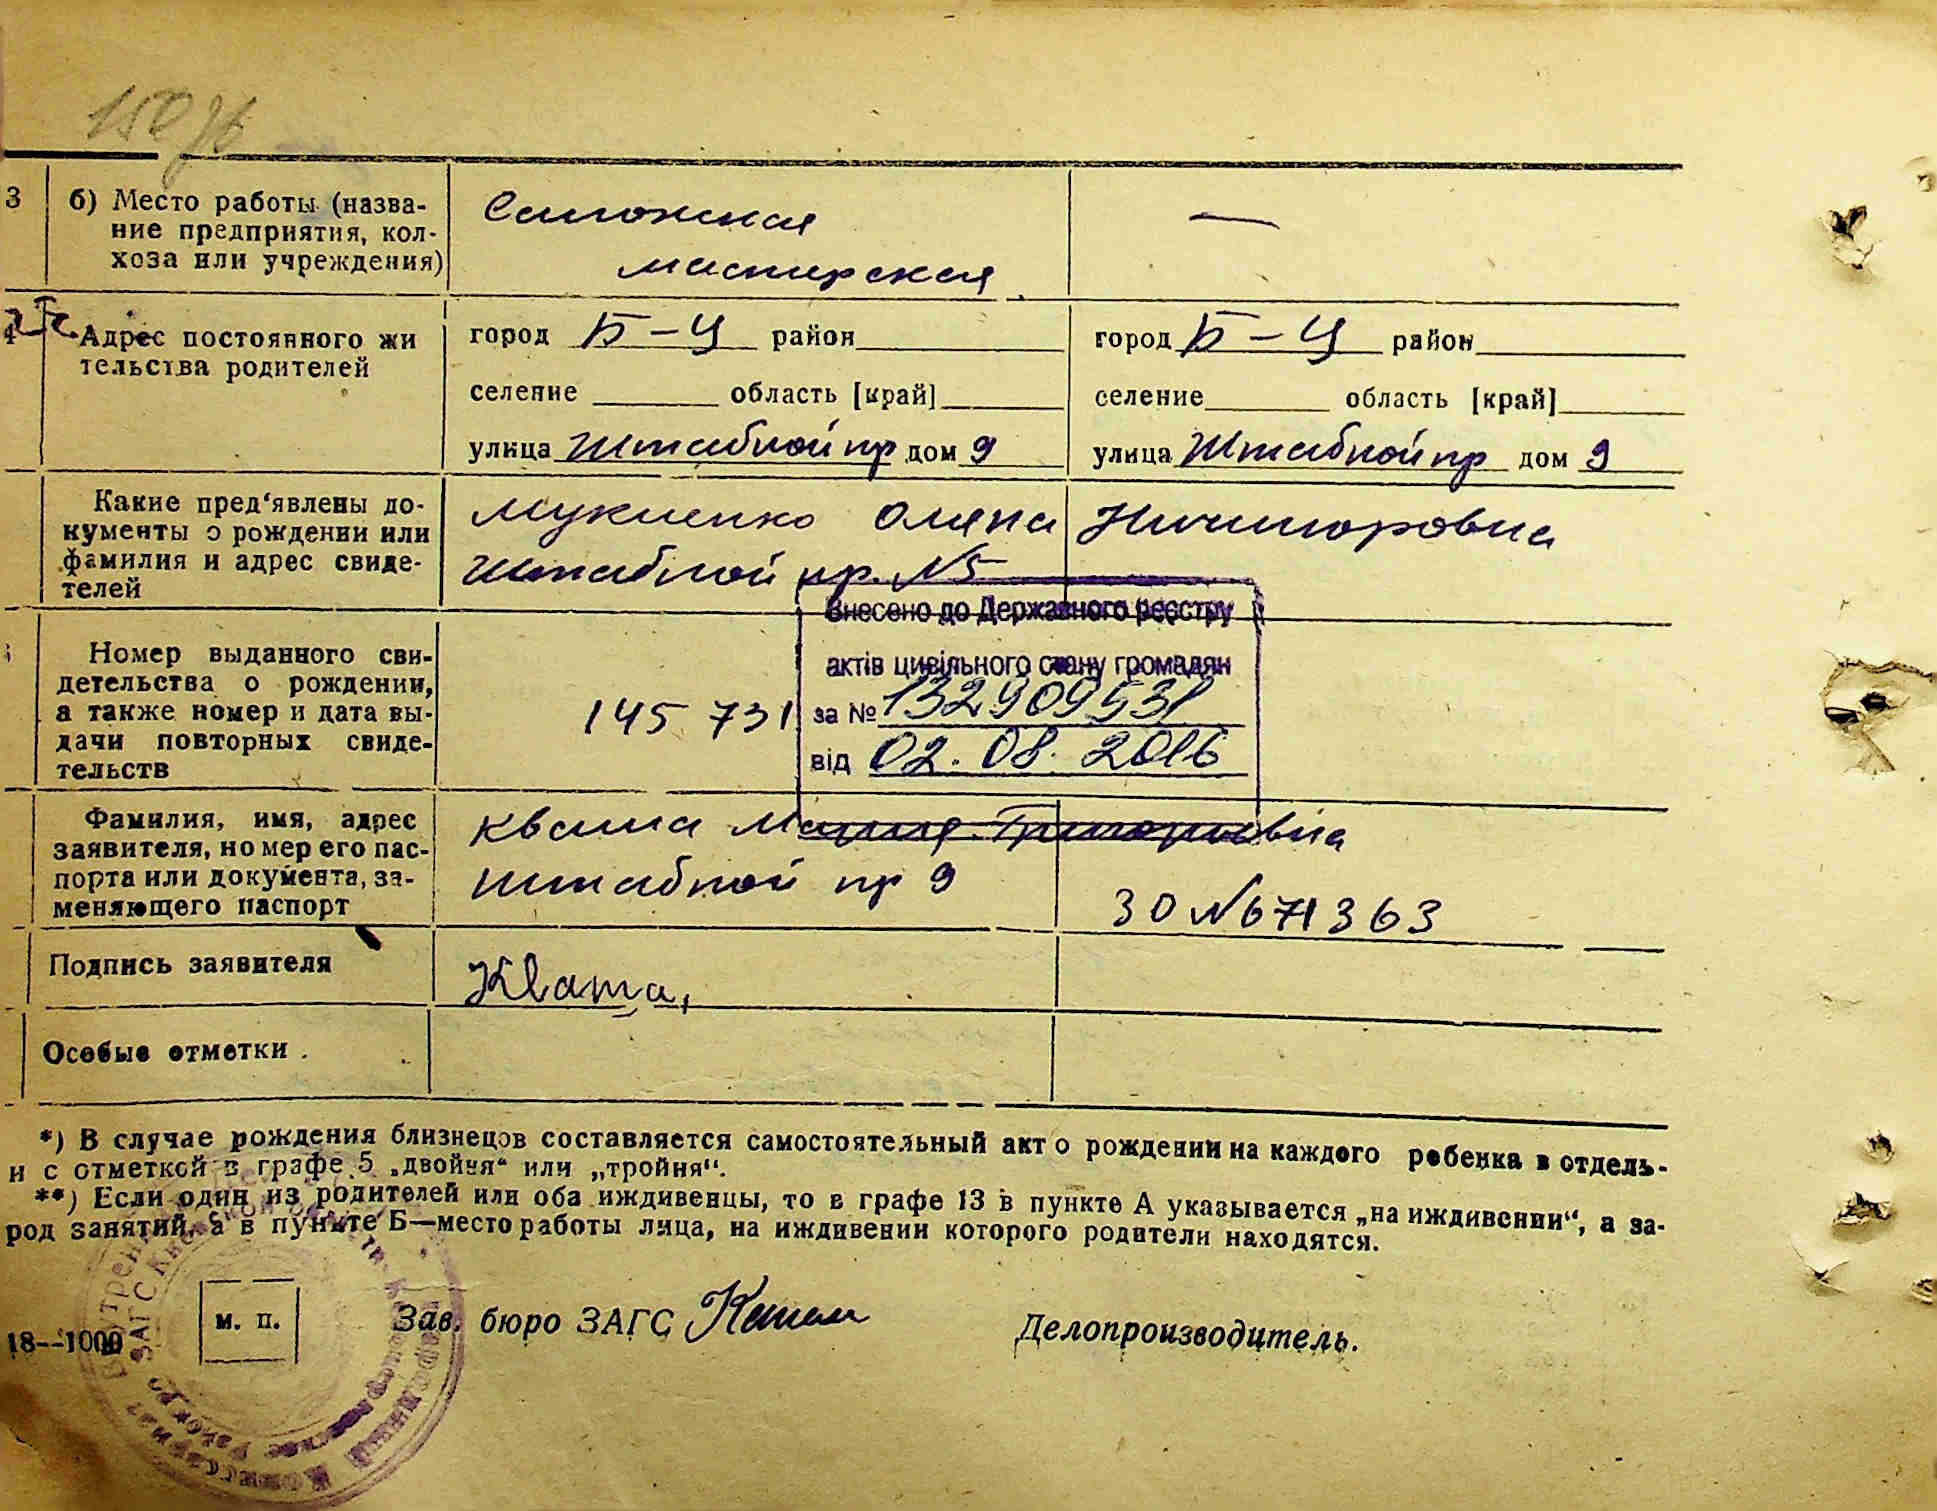 150
3 б) Место работы (назва-
ние предприятия, кол-
хоза или учреждения)
Сапожная
мастерская
—
4 Адрес постоянного жи
тельства родителей
город Б-Ц район
селение область [край]
улица Штабной пр дом 9
город Б-Ц район
селение область [край]
улица Штабной пр дом 9
Какие пред‘явлены до-
кументы о рождении или
фамилия и адрес свиде-
телей
Мукиенко Оляна Ничипоровна
Штабной пр. №5
Номер выданного сви-
детельства о рождении,
а также номер и дата вы-
дачи повторных свиде-
тельств
145 731
Внесено до Державного реєстру
актів цивільного стану громадян
за № 132909531
від 02.08.2016
Фамилия, имя, адрес
заявителя, номер его пас-
порта или документа, за-
меняющего паспорт
Кваша Мария Григорьевна
Штабной пр 9
30 №671363
Подпись заявителя
Кваша,
Особые отметки.
*) В случае рождения близнецов составляется самостоятельный акт о рождении на каждого ребенка в отдель-
и с отметкой в графе 5 „двойня“ или „тройня“.
**) Если один из родителей или оба иждивенцы, то в графе 13 в пункте А указывается „на иждивении“, а за-
род занятий, а в пункте Б—место работы лица, на иждивении которого родители находятся.
м. п.
Зав. бюро ЗАГС
Делопроизводитель.
18--1000